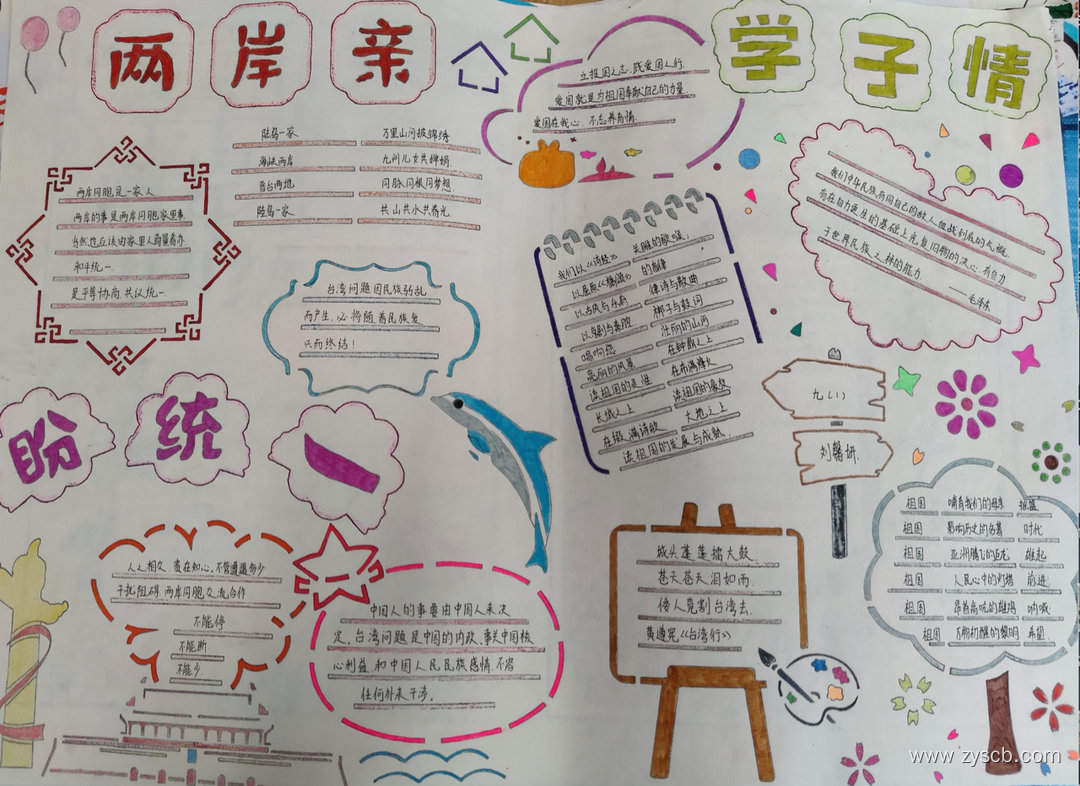 两岸亲
学子情
立报国之志,践爱国人行
爱国就是为祖国奉献自己的力量
爱国在我心,不忘养育情
陆岛一家
万里山河披锦绣
海峡两岸
九州儿女共婵娟
晋台两地
同脉同根同梦想
陆岛一家
共山共水共春光
两岸同胞是一家人
两岸的事是两岸同胞家里事
当然也应该由家里人商量着办
和平统一
是平等协商,共议统一.
台湾问题因民族弱乱
而产生,必将随着民族复
兴而终结!
我们中华民族有同自己的敌人血战到底的气概
有在自力更生的基础上光复旧物的决心,有自力
于世界民族之林的能力
——毛泽东
我们以《诗经》
长雎的歌喉;
以屈原《
的韵律
以古风与乐府
律诗与散曲
梆子与鼓词
唱响您
壮丽的山河
亮丽的风景
在钟鼓之上
读祖国的
长城之上
大地之上
在缀满诗歌
读祖国的发展与成就.
盼统一
九(1)
刘馨妍.
祖国
哺育我们的母亲
祖国
影响历史的
时代
祖国
亚洲腾飞的巨龙
雄起
祖国
人民心中的灯塔
前进
祖国
昂首高吭的雄鸡
呐喊
祖国
万物初醒的黎明
希望
人之相交,贵在知心,不管遭遇多少
干扰阻碍,两岸同胞交流合作
不能停
不能断
不能少.
中国人的事要由中国人来决
定,台湾问题是中国的内政,事关中国核
心利益和中国人民民族感情,不容
任何外来干涉.
城头逢逢擂大鼓.
苍天苍天泪如雨.
倭人竟割台湾去.
黄遵宪《台湾行》
www.zyscb.com